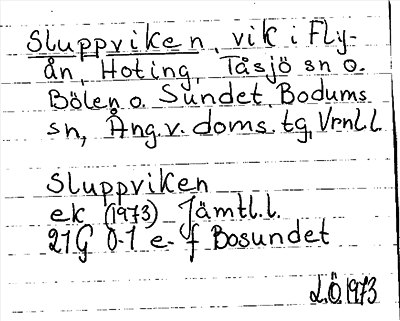 Sluppviken, vik i Fly-
ån, Hoting, Tåsjö sn o.
Bölen o. Sundet, Bodums
sn, Ång. v. doms. tg, Vrnl. l.
Sluppviken
ek (1973) Jämtl. l.
21G 0-1 e-f Bosundet
L.Ö. 1973